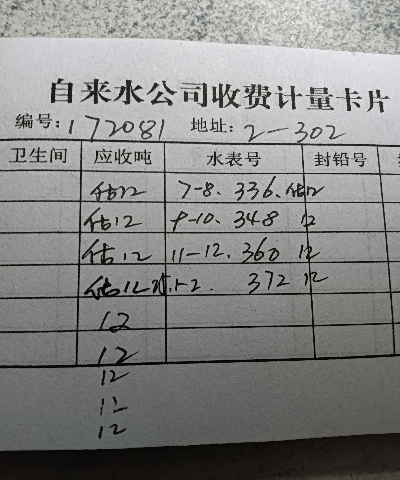 自来水公司收费计量卡片
编号:172081 地址:2-302
卫生间 应收吨 水表号 封铅号
估12 7-8. 336. 估12
估12 9-10. 348 12
估12 11-12. 360 12
估12 1-2. 372 12
12
12
12
12
12